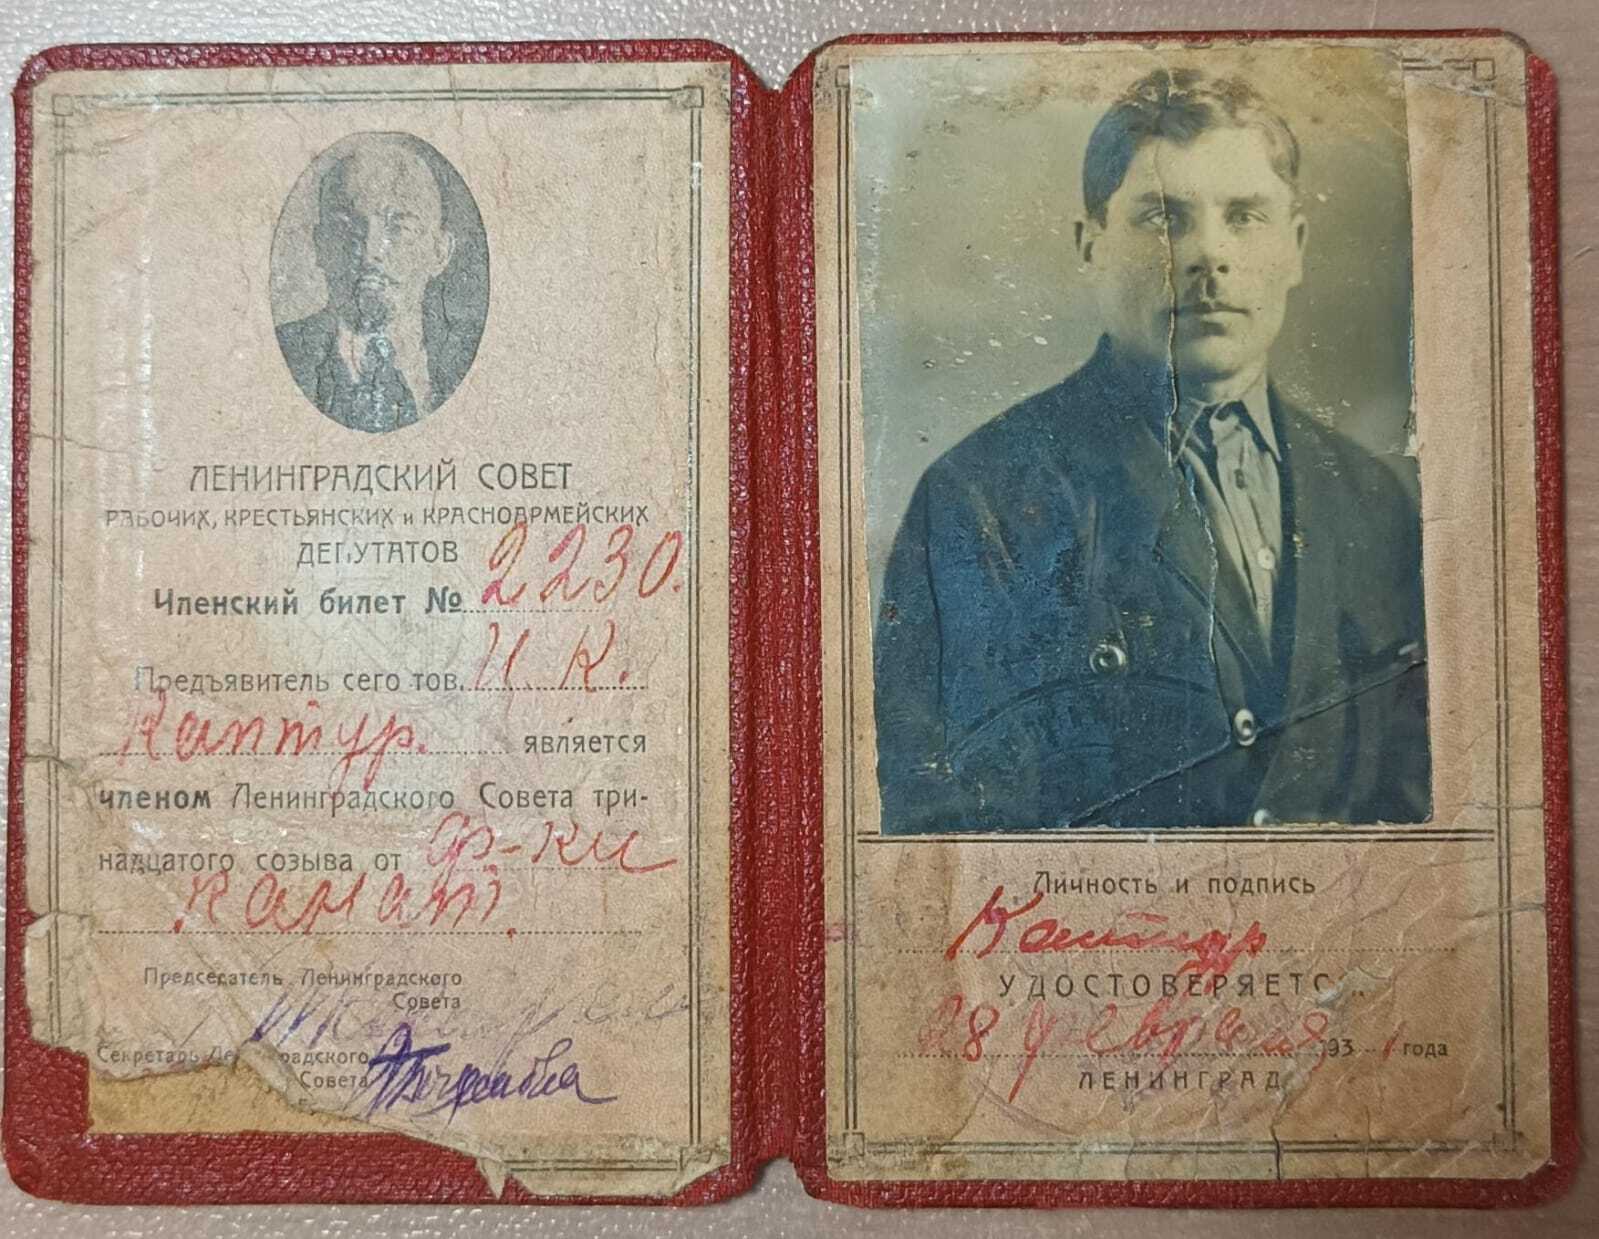 ЛЕНИНГРАДСКИЙ СОВЕТ
РАБОЧИХ, КРЕСТЬЯНСКИХ и КРАСНОАРМЕЙСКИХ
ДЕПУТАТОВ
Членский билет № 2230.
Предъявитель сего тов. И. К.
Каптур. является
членом Ленинградского Совета три-
надцатого созыва от ф-ки
Канат.
Председатель Ленинградского
Совета
Секретарь Ленинградского
Совета
Личность и подпись
Каптур
УДОСТОВЕРЯЕТСЯ
28 февраля 1931 года
ЛЕНИНГРАД